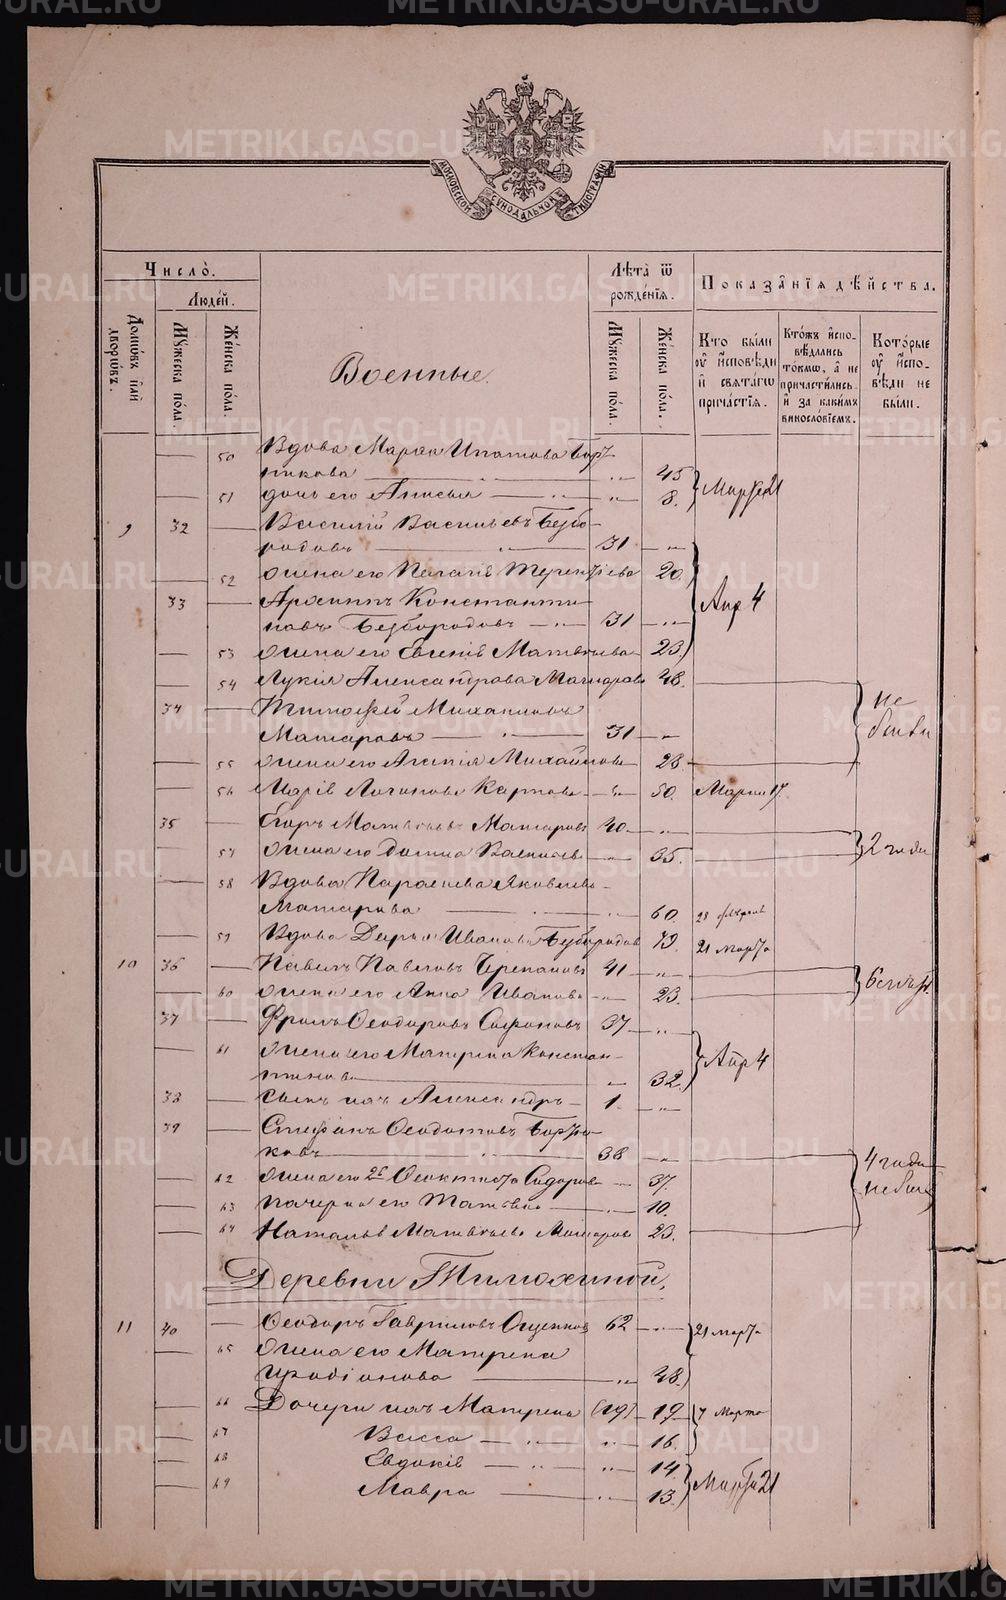 МОСКОВСКОЙ СУНОДАЛЬНОЙ ТИПОГРАФІИ
Число.
Людей.
Домовъ или дворовъ.
Мужеска пола.
Женска пола.
Военные.
Лѣта ѿ рожденія.
Мужеска пола.
Женска пола.
Показанія дѣйства.
Кто были у исповѣди и святагѡ причастія.
Ктожъ исповѣдались токмѡ, а не причастились и за какимъ винословіемъ.
Которые у исповѣди не были.
50 Вдова Марѳа Ипатова
никова 45
51 дочь его Анисья 8. Марта 21
9 32 Василій Васильевъ Безбо-
родовъ 31
52 жена его Пелагія Терентіева 20.
33 Архиппъ Константи-
новъ Безбородовъ 31 Апр 4
53 жена его Евгенія Матвѣева 23.
54 Лукія Александрова Матарова 48.
34 Тимоѳей Михаиловъ
Матаровъ 31 не были
55 жена его Агапія Михайлова 28.
56 Марія Логинова Карпова 50. Марта 17.
35 Егоръ Матвѣевъ Матаровъ 40
57 жена его Домна Васильева 35. 2 года
58 Вдова Параскева Яковлева
Матарова 60. 28 февраля
59 Вдова Дарья Иванова Безбородова 73. 21 марта
10 36 Павелъ Павловъ Черепановъ 41
60 жена его Анна Иванова 23.
37 Фролъ Ѳеодоровъ Сафоновъ 37
61 жена его Матрена Констан-
тинова 32. Апр 4
38 сынъ ихъ Александръ 1.
39 Стефанъ Ѳеодотовъ
ковъ 38 4 года не были
62 жена его 2я Ѳеоктиста Сидорова 37.
63 падчерица его Татьяна 10.
64 Наталья Матвѣева Матарова 23.
Деревни Тимохиной.
11 40 Ѳеодоръ Гавриловъ Ощепковъ 62 21 марта
65 жена его Матрена
Иродіонова 48.
66 Дочери ихъ Матрена (19) 19 7 Марта
67 Васса 16.
68 Евдокія 14
69 Мавра 13. Марта 21
METRIKI.GASO-URAL.RU